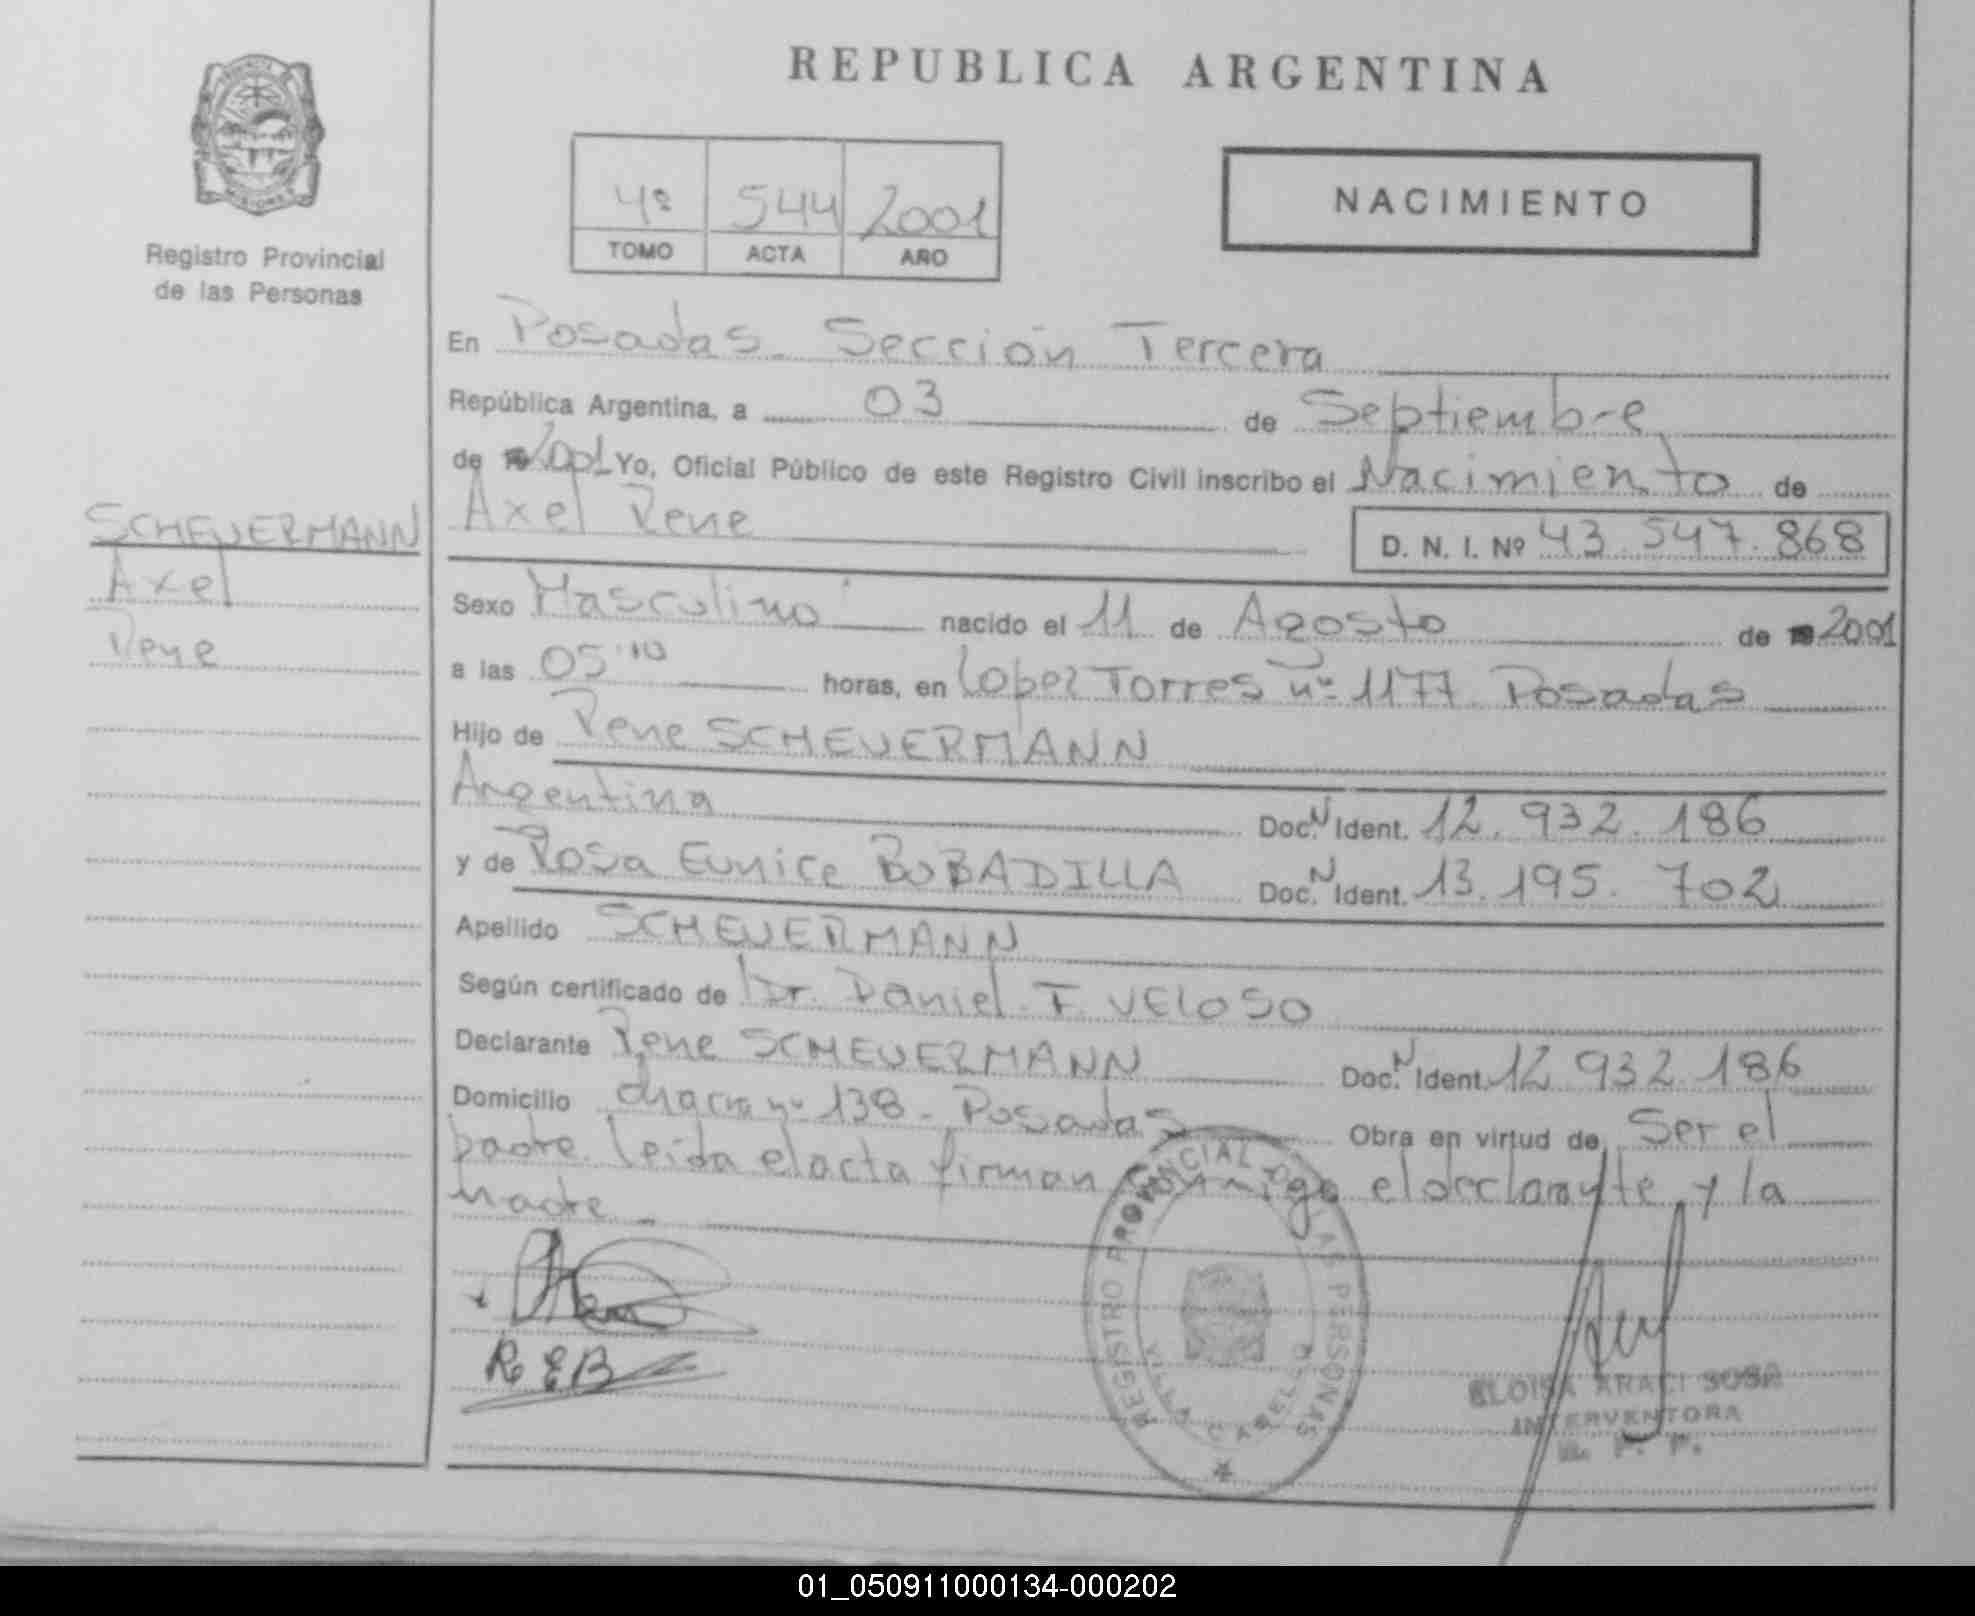 REPUBLICA ARGENTINA
Registro Provincial
de las Personas
4º 544 2001
TOMO ACTA AÑO
NACIMIENTO
SCHEUERMANN
Axel
Rene
En Posadas. Sección Tercera
República Argentina, a 03 de Septiembre
de 2001 Yo, Oficial Público de este Registro Civil inscribo el Nacimiento de
Axel Rene D. N. I. Nº 43.547.868
Sexo Masculino nacido el 11 de Agosto de 2001
a las 05'10 horas, en Lopez Torres nº 1177 Posadas
Hijo de Rene SCHEUERMANN
Argentina Doc. N Ident. 12.932.186
y de Rosa Eunice BOBADILLA Doc. N Ident. 13.195.702
Apellido SCHEUERMANN
Según certificado de Dr. Daniel F. VELOSO
Declarante Rene SCHEUERMANN Doc. N Ident. 12 932.186
Domicilio chacra nº 138 - Posadas Obra en virtud de Ser el
padre. leida el acta firman conmigo el declarante y la
madre
REB
REGISTRO PROVINCIAL DE LAS PERSONAS
VILLA CABELLO
ELOISA ARACI SOSA
INTERVENTORA
R. P. P.
01_050911000134-000202